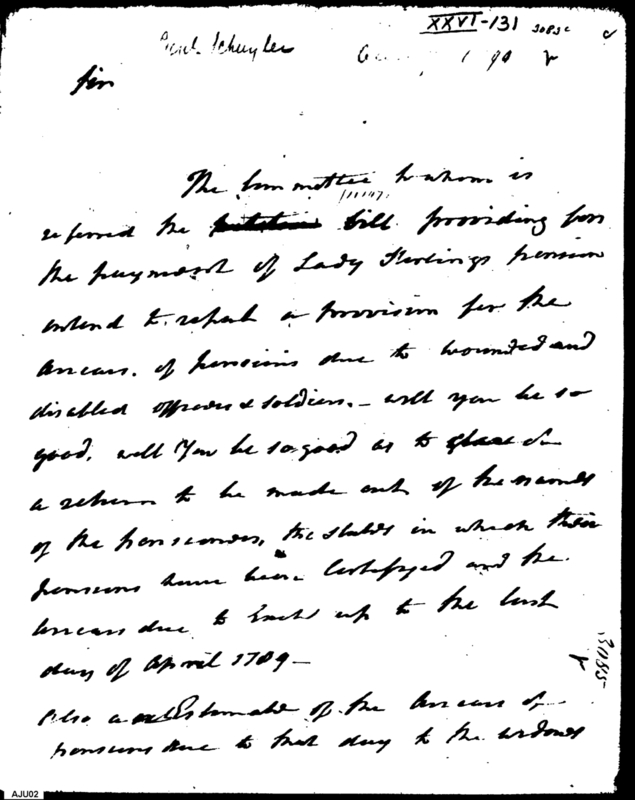 XXVI-131 3083c
Schuyler
Sir
The Committee to whom is
referred the bill providing for
the payment of Lady Sterlings pension
intend to report a provision for the
arrears. of pensions due to wounded and
disabled officers & soldiers. – will you be so
good. will You be so good as to
a return to be made out of the names
of the pensioners, the states in which their
pensions have been Certifyed and the
arrears due to Each up to the last
day of April 1789 –
Also an Estimate of the Arrears of
pensions due to that day to the widows
31185
AJU02